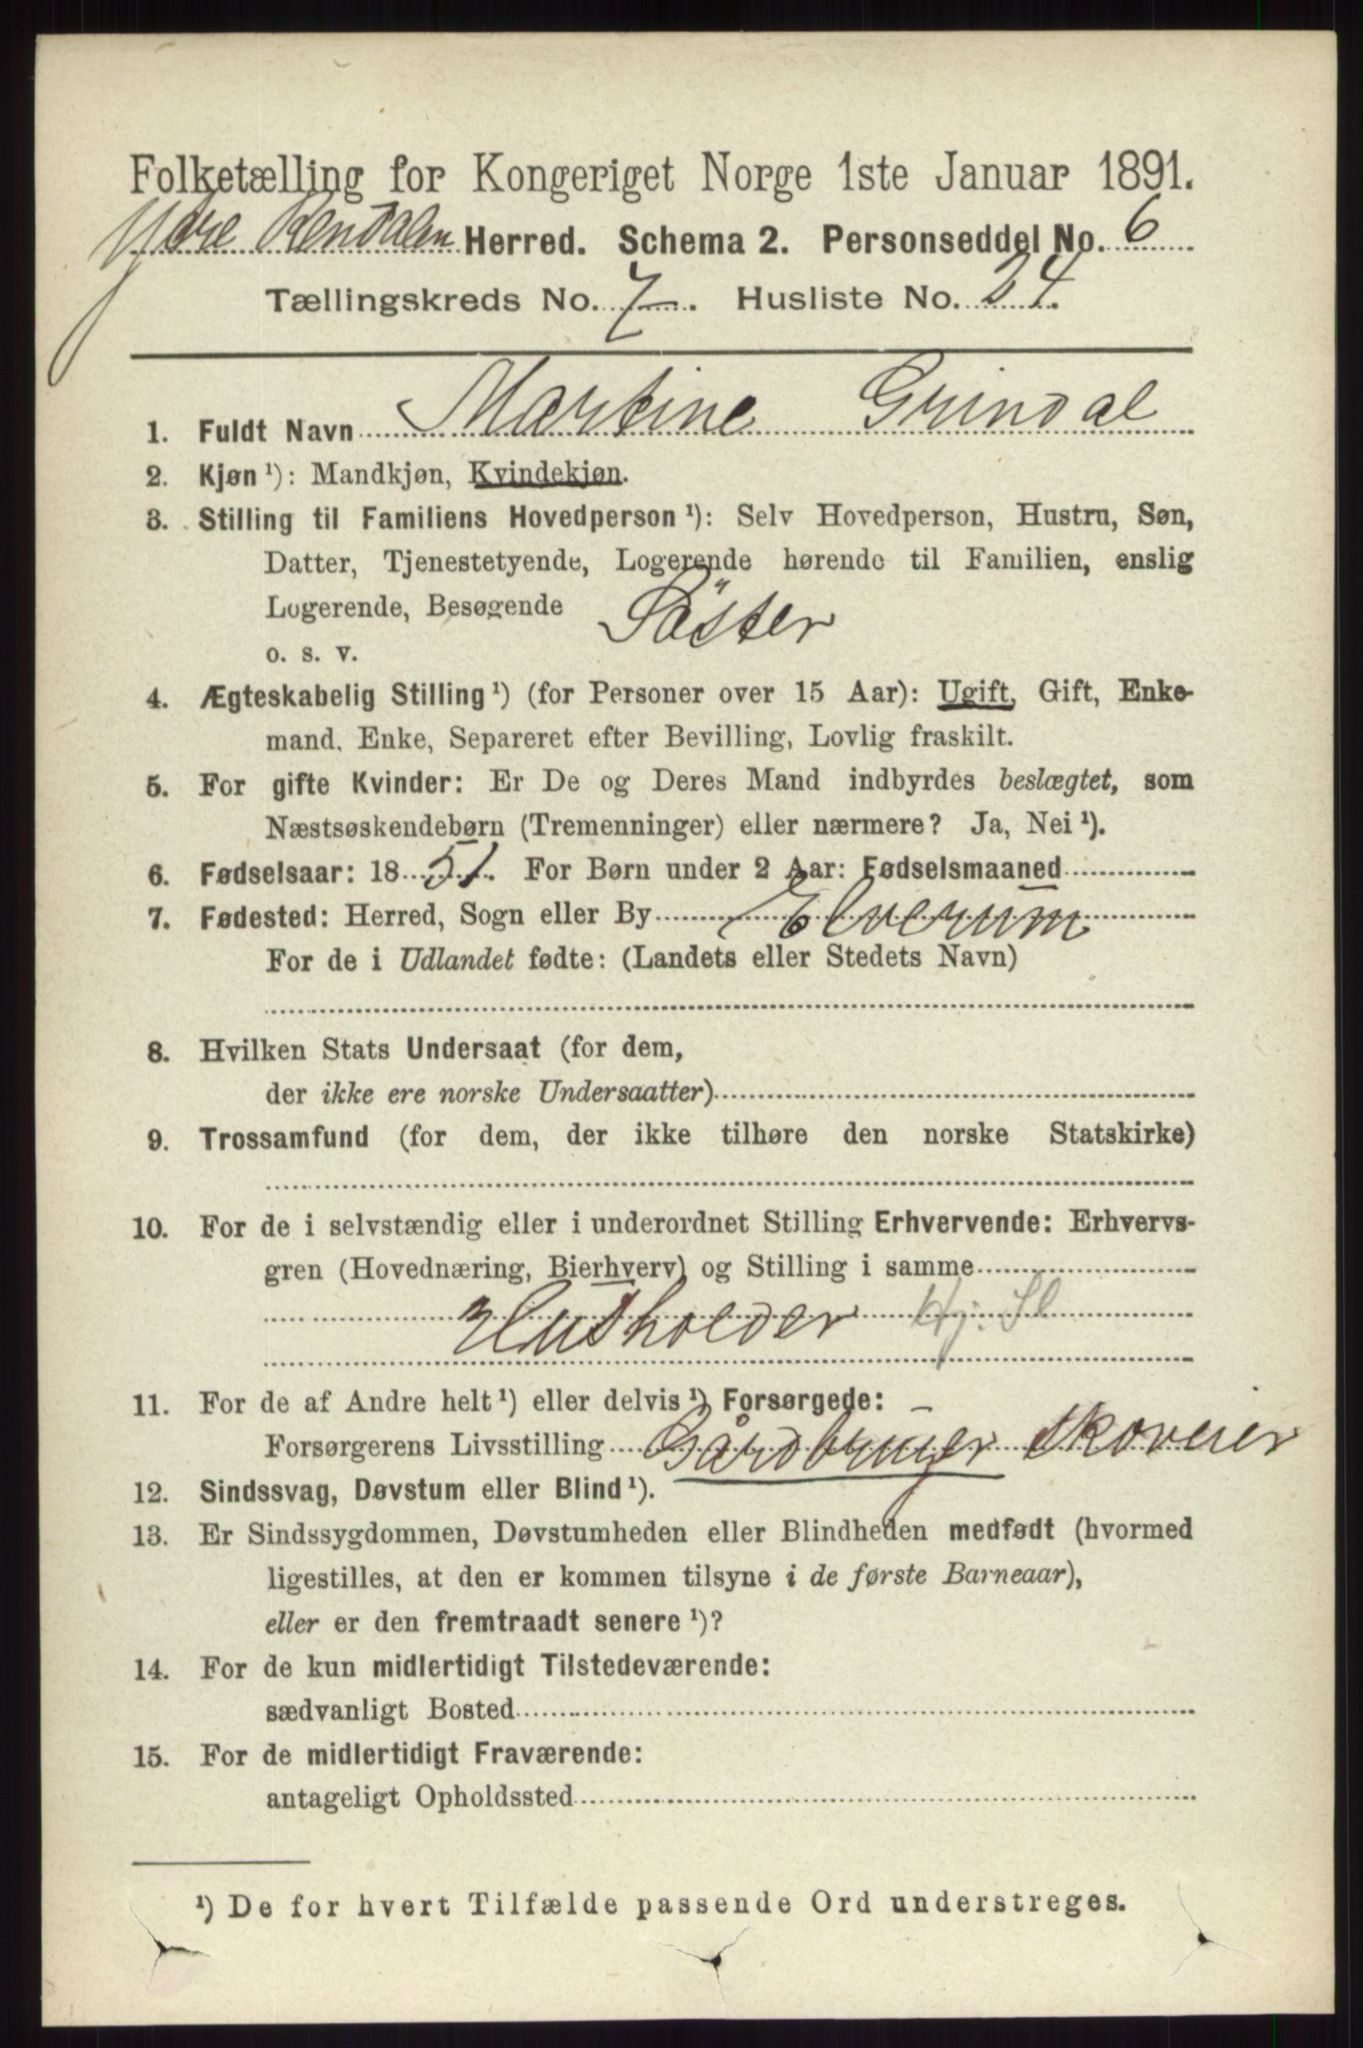 Folketælling for Kongeriget Norge 1ste Januar 1891.
Ytre Rendalen Herred. Schema 2. Personseddel No. 6
Tællingskreds No. 7. Husliste No. 24.
1. Fuldt Navn Martine Grindal
2. Kjøn ¹): Mandkjøn, Kvindekjøn.
3. Stilling til Familiens Hovedperson ¹): Selv Hovedperson, Hustru, Søn,
Datter, Tjenestetyende, Logerende hørende til Familien, enslig
Logerende, Besøgende Söster
o. s. v.
4. Ægteskabelig Stilling ¹) (for Personer over 15 Aar): Ugift, Gift, Enke-
mand, Enke, Separeret efter Bevilling, Lovlig fraskilt.
5. For gifte Kvinder: Er De og Deres Mand indbyrdes beslægtet, som
Næstsøskendebørn (Tremenninger) eller nærmere? Ja, Nei ¹).
6. Fødselsaar: 1851. For Børn under 2 Aar: Fødselsmaaned
7. Fødested: Herred, Sogn eller By Elverum
For de i Udlandet fødte: (Landets eller Stedets Navn)
8. Hvilken Stats Undersaat (for dem,
der ikke ere norske Undersaatter)
9. Trossamfund (for dem, der ikke tilhøre den norske Statskirke)
10. For de i selvstændig eller i underordnet Stilling Erhvervende: Erhvervs-
gren (Hovednæring, Bierhverv) og Stilling i samme
Husholder Hj. Sl
11. For de af Andre helt ¹) eller delvis ¹) Forsørgede:
Forsørgerens Livsstilling Gårdbruger Skoveier
12. Sindssvag, Døvstum eller Blind ¹).
13. Er Sindssygdommen, Døvstumheden eller Blindheden medfødt (hvormed
ligestilles, at den er kommen tilsyne i de første Barneaar),
eller er den fremtraadt senere ¹)?
14. For de kun midlertidigt Tilstedeværende:
sædvanligt Bosted
15. For de midlertidigt Fraværende:
antageligt Opholdssted
¹) De for hvert Tilfælde passende Ord understreges.